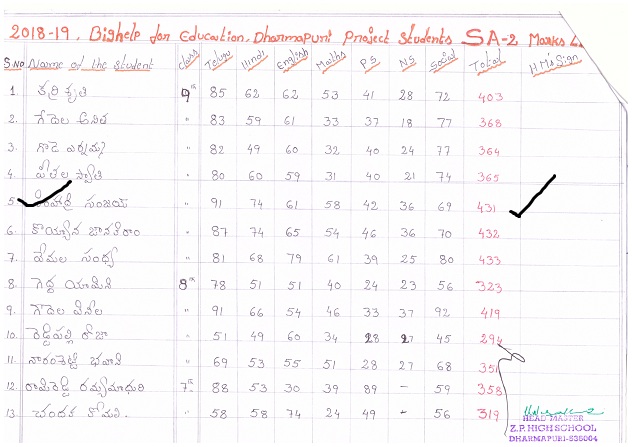 2018-19, Bighelp for Education, Dharmapuri Project Students SA-2 Marks
S.No Name of the Student class Telugu Hindi English Maths PS NS Social Total HM's Sign
1. కర్రి కృతి 9th 85 62 62 53 41 28 72 403
2. గేదెల అనిత " 83 59 61 33 37 18 77 368
3. గొడె ఎర్నమ్మ " 82 49 60 32 40 24 77 364
4. పీతల స్వాతి " 80 60 59 31 40 21 74 365
5 సింహాద్రి సంజయ్ " 91 74 61 58 42 36 69 431
6. కొయ్యాన జానకిరాం " 87 74 65 54 46 36 70 432
7. వేమల సంధ్య " 81 68 79 61 39 25 80 433
8. గెద్ద యామిని 8th 78 51 51 40 24 23 56 323
9. గొదెల వినీల " 91 66 54 46 33 37 92 419
10. రెడ్డిపల్లి రోజా " 51 49 60 34 28 27 45 294
11. నారంశెట్టి భవాని " 69 53 55 51 28 27 68 351
12. రామిరెడ్డి రమ్యమాధురి 7th 88 53 30 39 89 - 59 358
13. చందక కోమలి. " 58 58 74 24 49 - 56 319
HEAD MASTER
Z.P. HIGH SCHOOL
DHARMAPURI-535004